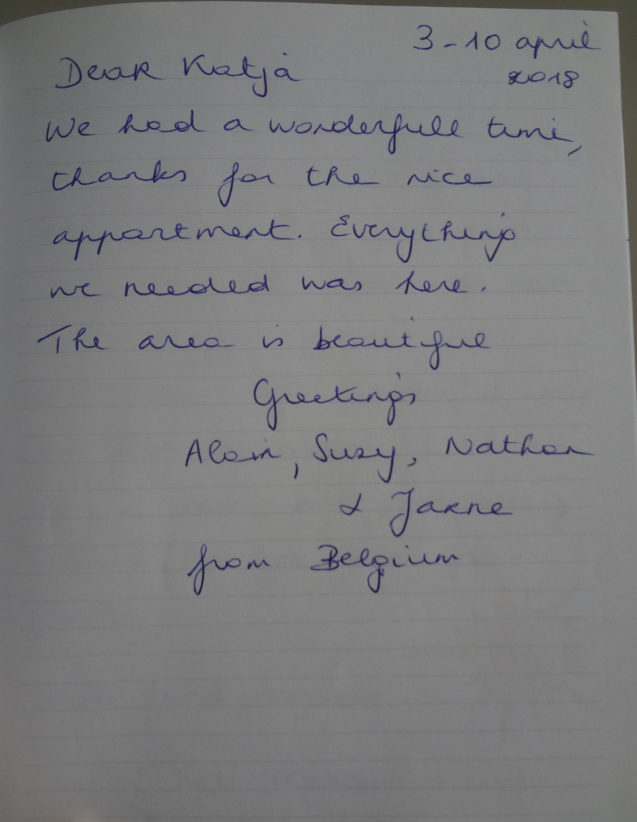 3 - 10 april
2018
Dear Katja
We had a wonderfull time,
thanks for the nice
appartment. Everything
we needed was here.
The area is beautiful
Greetings
Alain, Suzy, Nathan
& Jarne
from Belgium